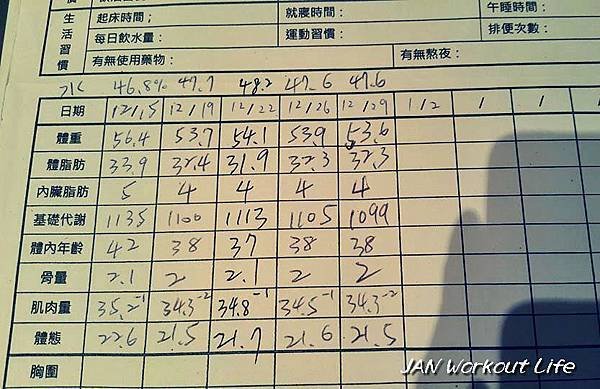 慣
生 起床時間： 就寢時間： 午睡時間：
活 每日飲水量： 運動習慣： 排便次數：
習
慣 有無使用藥物： 有無熬夜：
水 46.8% 47.7 48.2 47.6 47.6
日期 12/15 12/19 12/22 12/26 12/29 1/2 / / /
體重 56.4 53.7 54.1 53.9 53.6
體脂肪 33.9 32.4 31.9 32.3 32.3
內臟脂肪 5 4 4 4 4
基礎代謝 1135 1100 1113 1105 1099
體內年齡 42 38 37 38 38
骨量 2.1 2 2.1 2 2
肌肉量 35.2-1 34.3-2 34.8-1 34.5-1 34.3-2
體態 22.6 21.5 21.7 21.6 21.5
胸圍
JAN Workout Life